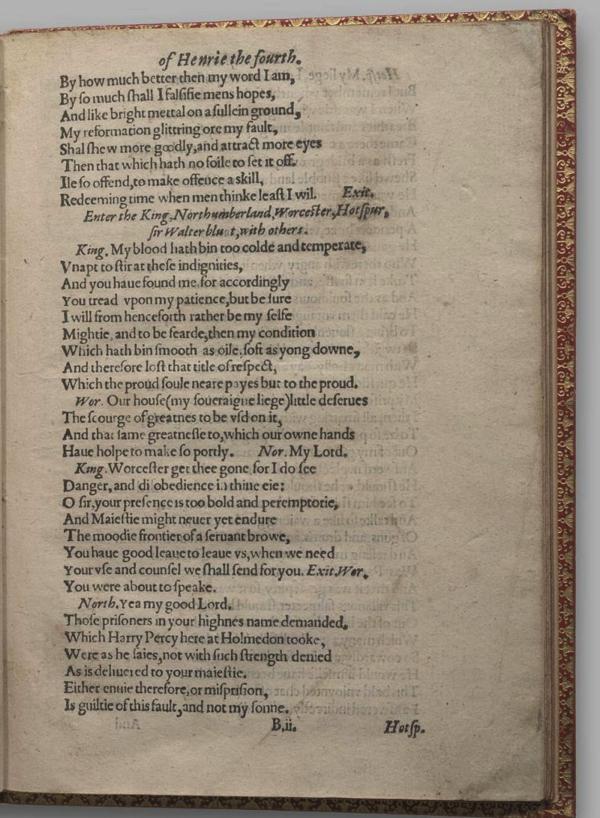 of Henrie the fourth.
By how much better then my word I am,
By so much shall I falsifie mens hopes,
And like bright mettal on a sullein ground,
My reformation glittring ore my fault,
Shal shew more goodly, and attract more eyes
Then that which hath no foile to set it off.
Ile so offend, to make offence a skill,
Redeeming time when men thinke least I wil. Exit.
Enter the King, Northumberland, Worcester, Hotspur,
sir Walter blunt, with others.
King. My blood hath bin too colde and temperate,
Vnapt to stir at these indignities,
And you haue found me, for accordingly
You tread vpon my patience, but be sure
I will from henceforth rather be my selfe
Mightie, and to be fearde, then my condition
Which hath bin smooth as oile, soft as yong downe,
And therefore lost that title of respect,
Which the proud soule neare payes but to the proud.
Wor. Our house (my soueraigne liege) little deserues
The scourge of greatnes to be vsd on it,
And that same greatnesse to, which our owne hands
Haue holpe to make so portly. Nor. My Lord.
King. Worcester get thee gone, for I do see
Danger, and disobedience in thine eie:
O sir, your presence is too bold and peremptorie,
And Maiestie might neuer yet endure
The moodie frontier of a seruant browe,
You haue good leaue to leaue vs, when we need
Your vse and counsel we shall send for you. Exit Wor.
You were about to speake.
North. Yea my good Lord.
Those prisoners in your highnes name demanded,
Which Harry Percy here at Holmedon tooke,
Were as he saies, not with such strength denied
As is deliuered to your maiestie.
Either enuie therefore, or misprision,
Is guiltie of this fault, and not my sonne.
B.ii. Hotsp.